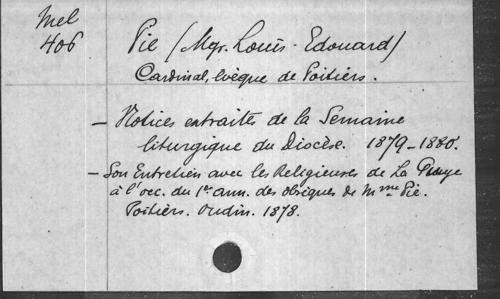 Mel
406
Pie (Mgr. Louis-Edouard)
Cardinal, évêque de Poitiers.
– Notices extraites de la Semaine
liturgique du Diocèse. 1879-1880.
– Son Entretien avec les Religieuses de La Puye
à l'occ. du 1er ann. des obsèques de Mme Pie.
Poitiers. Oudin. 1878.